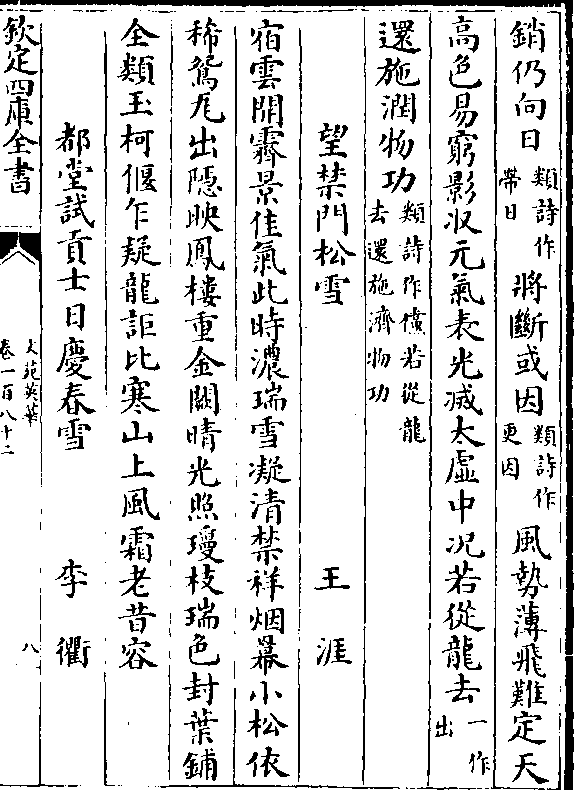 銷仍向日類詩作帶日將斷或因類詩作更因風勢薄飛難定天
高色易窮影収元氣表光滅太虚中况若從龍去一作出
還施潤物功類詩作儻若從龍去還施濟物功
望禁門松雪　王涯
宿雲開霽景佳氣此時濃瑞雪凝清禁祥烟羃小松依
稀鴛瓦出隠映鳳樓重金闕晴光照瓊枝瑞色封葉鋪
全類玉柯偃乍疑龍詎比寒山上風霜老昔容
都堂試貢士日慶春雪　李衢
欽定四庫全書
文苑英華
卷一百八十二
八